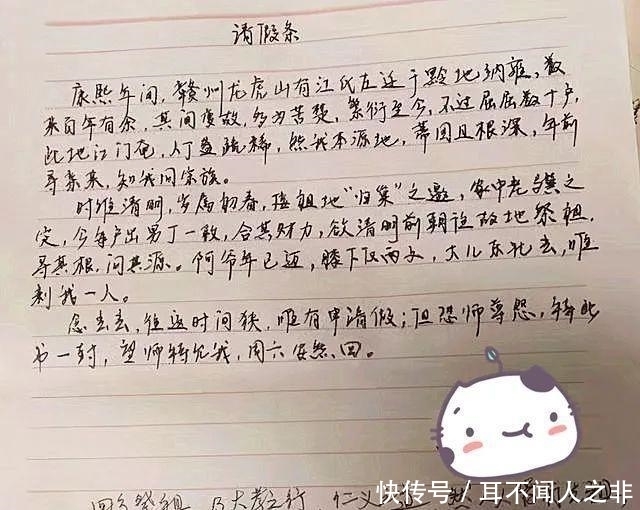 请假条
康熙年间,赣州龙虎山有江氏左迁于黔地纳雍,数
来百年有余,其间变故,多为苦楚,繁衍至今,不过屈屈数十户,
此地江门奄,人丁益疏稀,然我本源地,蒂固且根深,年前
寻亲来,知我同宗族。
时维清明,岁属初春,接祖地“归集”之邀,家中老
定,今每户出男丁一数,合其财力,欲清明前朝往故地祭祖,
寻其根,问其源。阿爷年已迈,膝下仅两子,大儿东北去,唯
剩我一人。
念去去,往返时间狭,唯有申请假;但恐师尊怨,特此
书一封,望师特允我,周六安然回。
回乡祭祖,乃大孝之行,仁义
快传号/耳不闻人之非